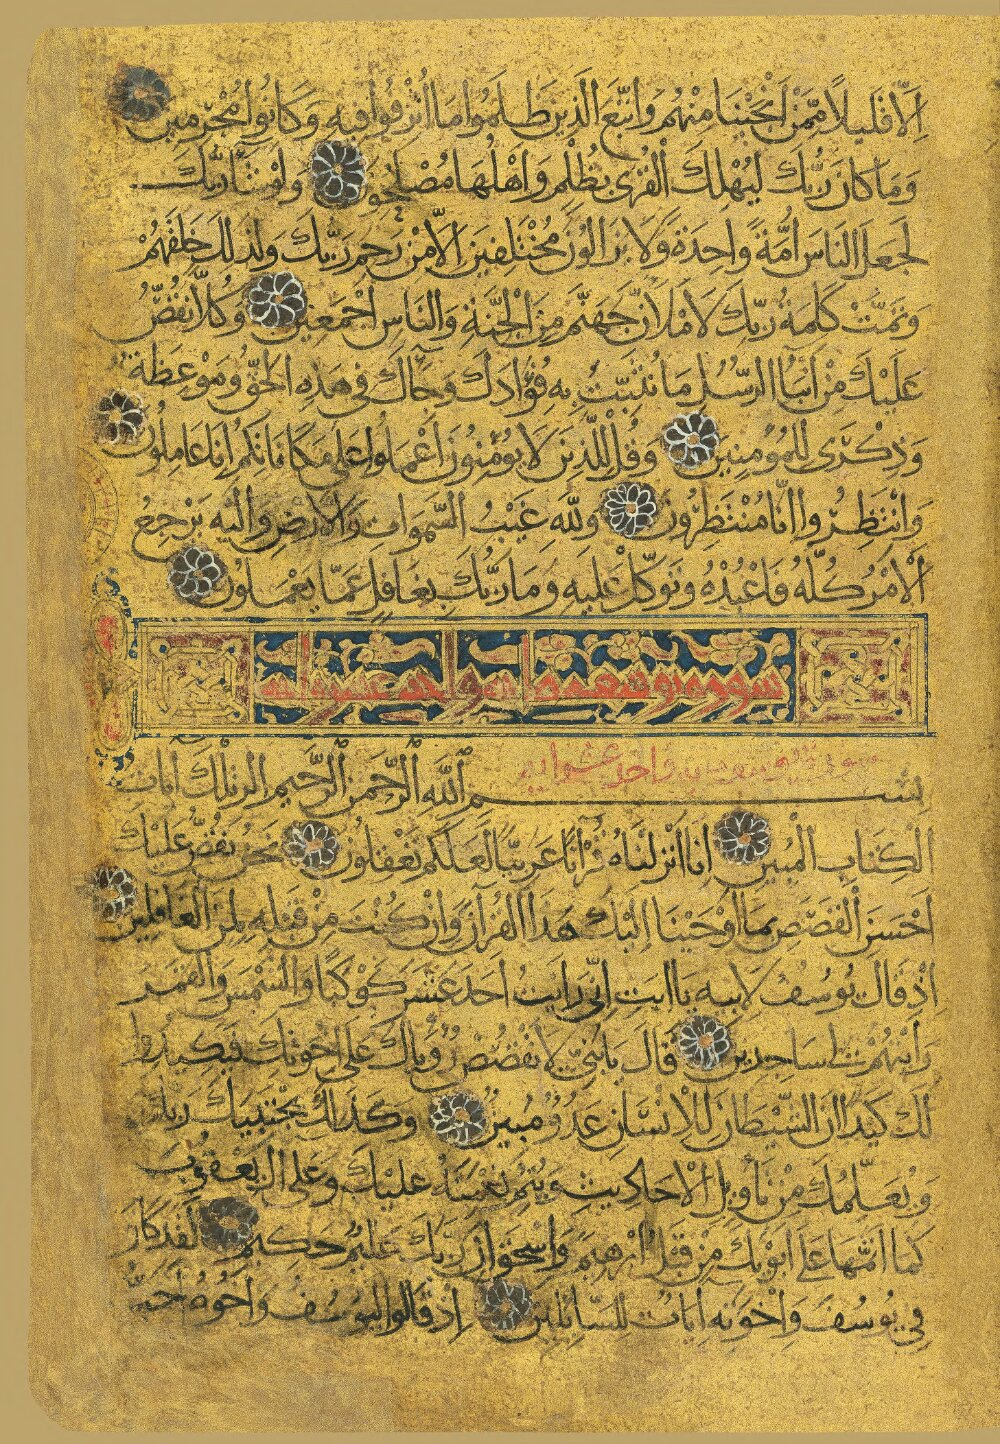 اِلَّا قَلِيلًا مِمَّنْ اَنْجَيْنَا مِنْهُمْ وَاتَّبَعَ الَّذِينَ ظَلَمُوا مَا اُتْرِفُوا فِيهِ وَكَانُوا مُجْرِمِينَ
وَمَا كَانَ رَبُّكَ لِيُهْلِكَ الْقُرَى بِظُلْمٍ وَاَهْلُهَا مُصْلِحُونَ وَلَوْ شَاءَ رَبُّكَ
لَجَعَلَ النَّاسَ اُمَّةً وَاحِدَةً وَلَا يَزَالُونَ مُخْتَلِفِينَ اِلَّا مَنْ رَحِمَ رَبُّكَ وَلِذَلِكَ خَلَقَهُمْ
وَتَمَّتْ كَلِمَةُ رَبِّكَ لَاَمْلَاَنَّ جَهَنَّمَ مِنَ الْجِنَّةِ وَالنَّاسِ اَجْمَعِينَ وَكُلًّا نَقُصُّ
عَلَيْكَ مِنْ اَنْبَاءِ الرُّسُلِ مَا نُثَبِّتُ بِهِ فُؤَادَكَ وَجَاءَكَ فِي هَذِهِ الْحَقُّ وَمَوْعِظَةٌ
وَذِكْرَى لِلْمُؤْمِنِينَ وَقُلْ لِلَّذِينَ لَا يُؤْمِنُونَ اعْمَلُوا عَلَى مَكَانَتِكُمْ اِنَّا عَامِلُونَ
وَانْتَظِرُوا اِنَّا مُنْتَظِرُونَ وَلِلَّهِ غَيْبُ السَّمَوَاتِ وَالْاَرْضِ وَاِلَيْهِ يُرْجَعُ
الْاَمْرُ كُلُّهُ فَاعْبُدْهُ وَتَوَكَّلْ عَلَيْهِ وَمَا رَبُّكَ بِغَافِلٍ عَمَّا يَعْمَلُونَ
سورة يوسف مائة واحد عشر اية
سورة يوسف مائة واحد عشر اية
بِسْمِ اللَّهِ الرَّحْمَنِ الرَّحِيمِ الر تِلْكَ آيَاتُ
الْكِتَابِ الْمُبِينِ اِنَّا اَنْزَلْنَاهُ قُرْآنًا عَرَبِيًّا لَعَلَّكُمْ تَعْقِلُونَ نَحْنُ نَقُصُّ عَلَيْكَ
اَحْسَنَ الْقَصَصِ بِمَا اَوْحَيْنَا اِلَيْكَ هَذَا الْقُرْآنَ وَاِنْ كُنْتَ مِنْ قَبْلِهِ لَمِنَ الْغَافِلِينَ
اِذْ قَالَ يُوسُفُ لِاَبِيهِ يَا اَبَتِ اِنِّي رَاَيْتُ اَحَدَ عَشَرَ كَوْكَبًا وَالشَّمْسَ وَالْقَمَرَ
رَاَيْتُهُمْ لِي سَاجِدِينَ قَالَ يَا بُنَيَّ لَا تَقْصُصْ رُؤْيَاكَ عَلَى اِخْوَتِكَ فَيَكِيدُوا
لَكَ كَيْدًا اِنَّ الشَّيْطَانَ لِلْاِنْسَانِ عَدُوٌّ مُبِينٌ وَكَذَلِكَ يَجْتَبِيكَ رَبُّكَ
وَيُعَلِّمُكَ مِنْ تَاْوِيلِ الْاَحَادِيثِ وَيُتِمُّ نِعْمَتَهُ عَلَيْكَ وَعَلَى آلِ يَعْقُوبَ
كَمَا اَتَمَّهَا عَلَى اَبَوَيْكَ مِنْ قَبْلُ اِبْرَهِيمَ وَاِسْحَقَ اِنَّ رَبَّكَ عَلِيمٌ حَكِيمٌ لَقَدْ كَانَ
فِي يُوسُفَ وَاِخْوَتِهِ آيَاتٌ لِلسَّائِلِينَ اِذْ قَالُوا لَيُوسُفُ وَاَخُوهُ اَحَبُّ